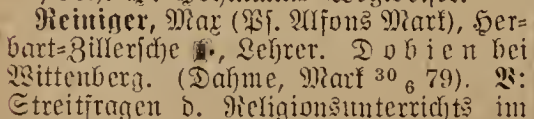 Reiniger, Max (Ps. Alfons Mark), Her-
bart-Zillersche , Lehrer. Dobien bei
Wittenberg. (Dahme, Mark 30 6 79). V:
Streitfragen d. Religionsunterrichts im